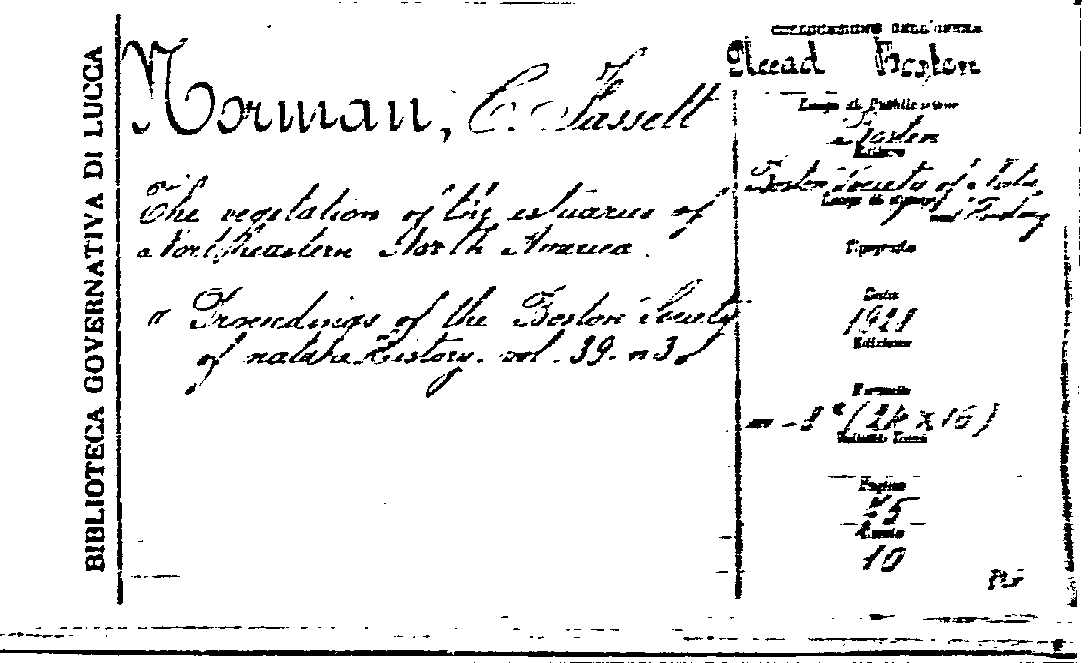 BIBLIOTECA GOVERNATIVA DI LUCCA
Norman, C. Fassett
The vegetation of the estuaries of
Northeastern North America.
Proceedings of the Boston Society
of natural History. vol. 39. n 3
COLLOCAZIONE DELL'OPERA
Acead Boston
Luogo di Pubblicazione
Boston
Editore
Boston Society of Natu
Luogo di stampa
Tipografia
Data
1921
Edizione
Formato
8° (24 x 16)
Pagine
75
10